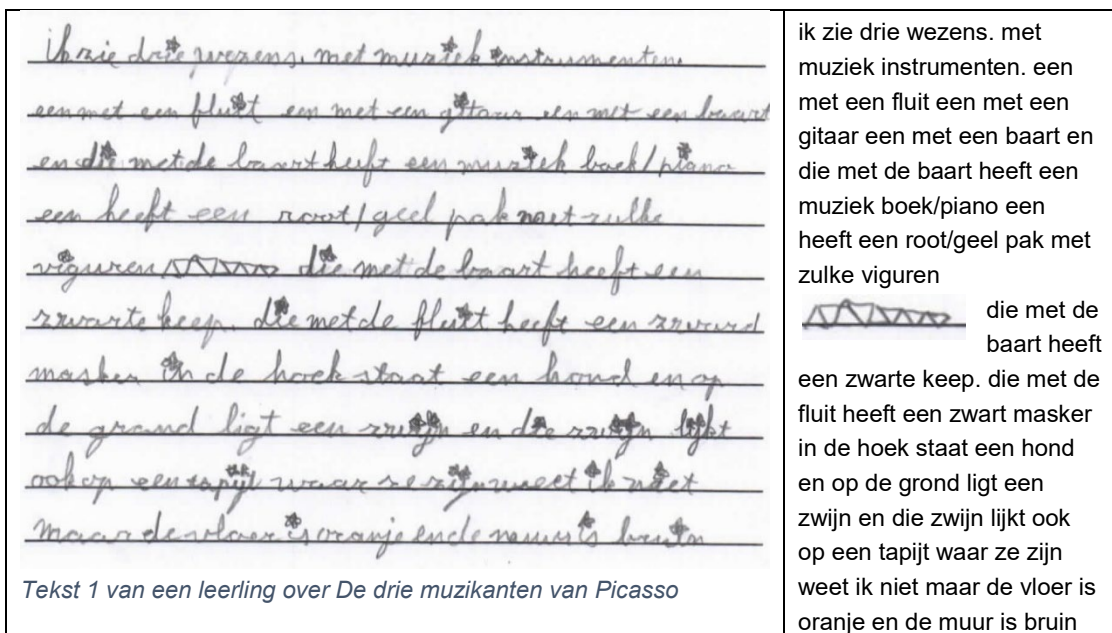 ik zie drie wezens. met muziek instrumenten.
een met een fluit een met een gitaar een met een baart
en die met de baart heeft een muziek boek/piano
een heeft een root/geel pak met zulke
viguren die met de baart heeft een
zwarte keep. die met de fluit heeft een zward
masker in de hoek staat een hond en op
de grond ligt een zwijn en die zwijn lijkt
ook op een tapijt waar ze zijn weet ik niet
maar de vloer is oranje en de muur is bruin
Tekst 1 van een leerling over De drie muzikanten van Picasso
ik zie drie wezens. met
muziek instrumenten. een
met een fluit een met een
gitaar een met een baart en
die met de baart heeft een
muziek boek/piano een
heeft een root/geel pak met
zulke viguren
die met de
baart heeft
een zwarte keep. die met de
fluit heeft een zwart masker
in de hoek staat een hond
en op de grond ligt een
zwijn en die zwijn lijkt ook
op een tapijt waar ze zijn
weet ik niet maar de vloer is
oranje en de muur is bruin